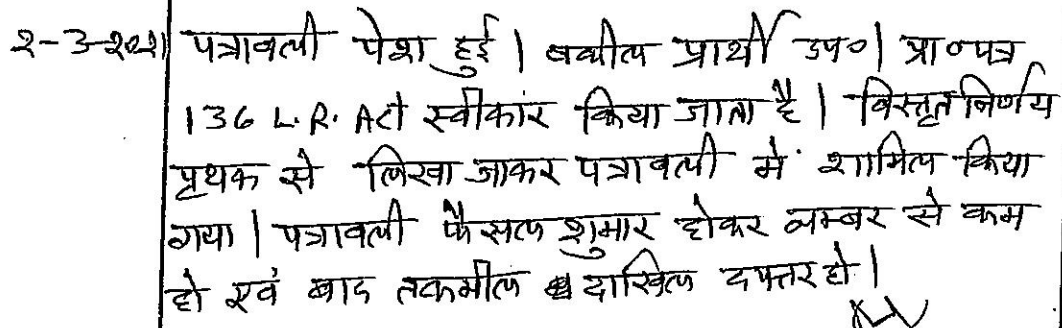 2-3-2021 पत्रावली पेश हुई। वकील प्रार्थी उप०। प्रा०पत्र
136 L.R. Act स्वीकार किया जाता है। विस्तृत निर्णय
पृथक से लिखा जाकर पत्रावली में शामिल किया
गया। पत्रावली फैसल शुमार होकर नम्बर से कम
हो एवं बाद तकमील दाखिल दफ्तर हो।